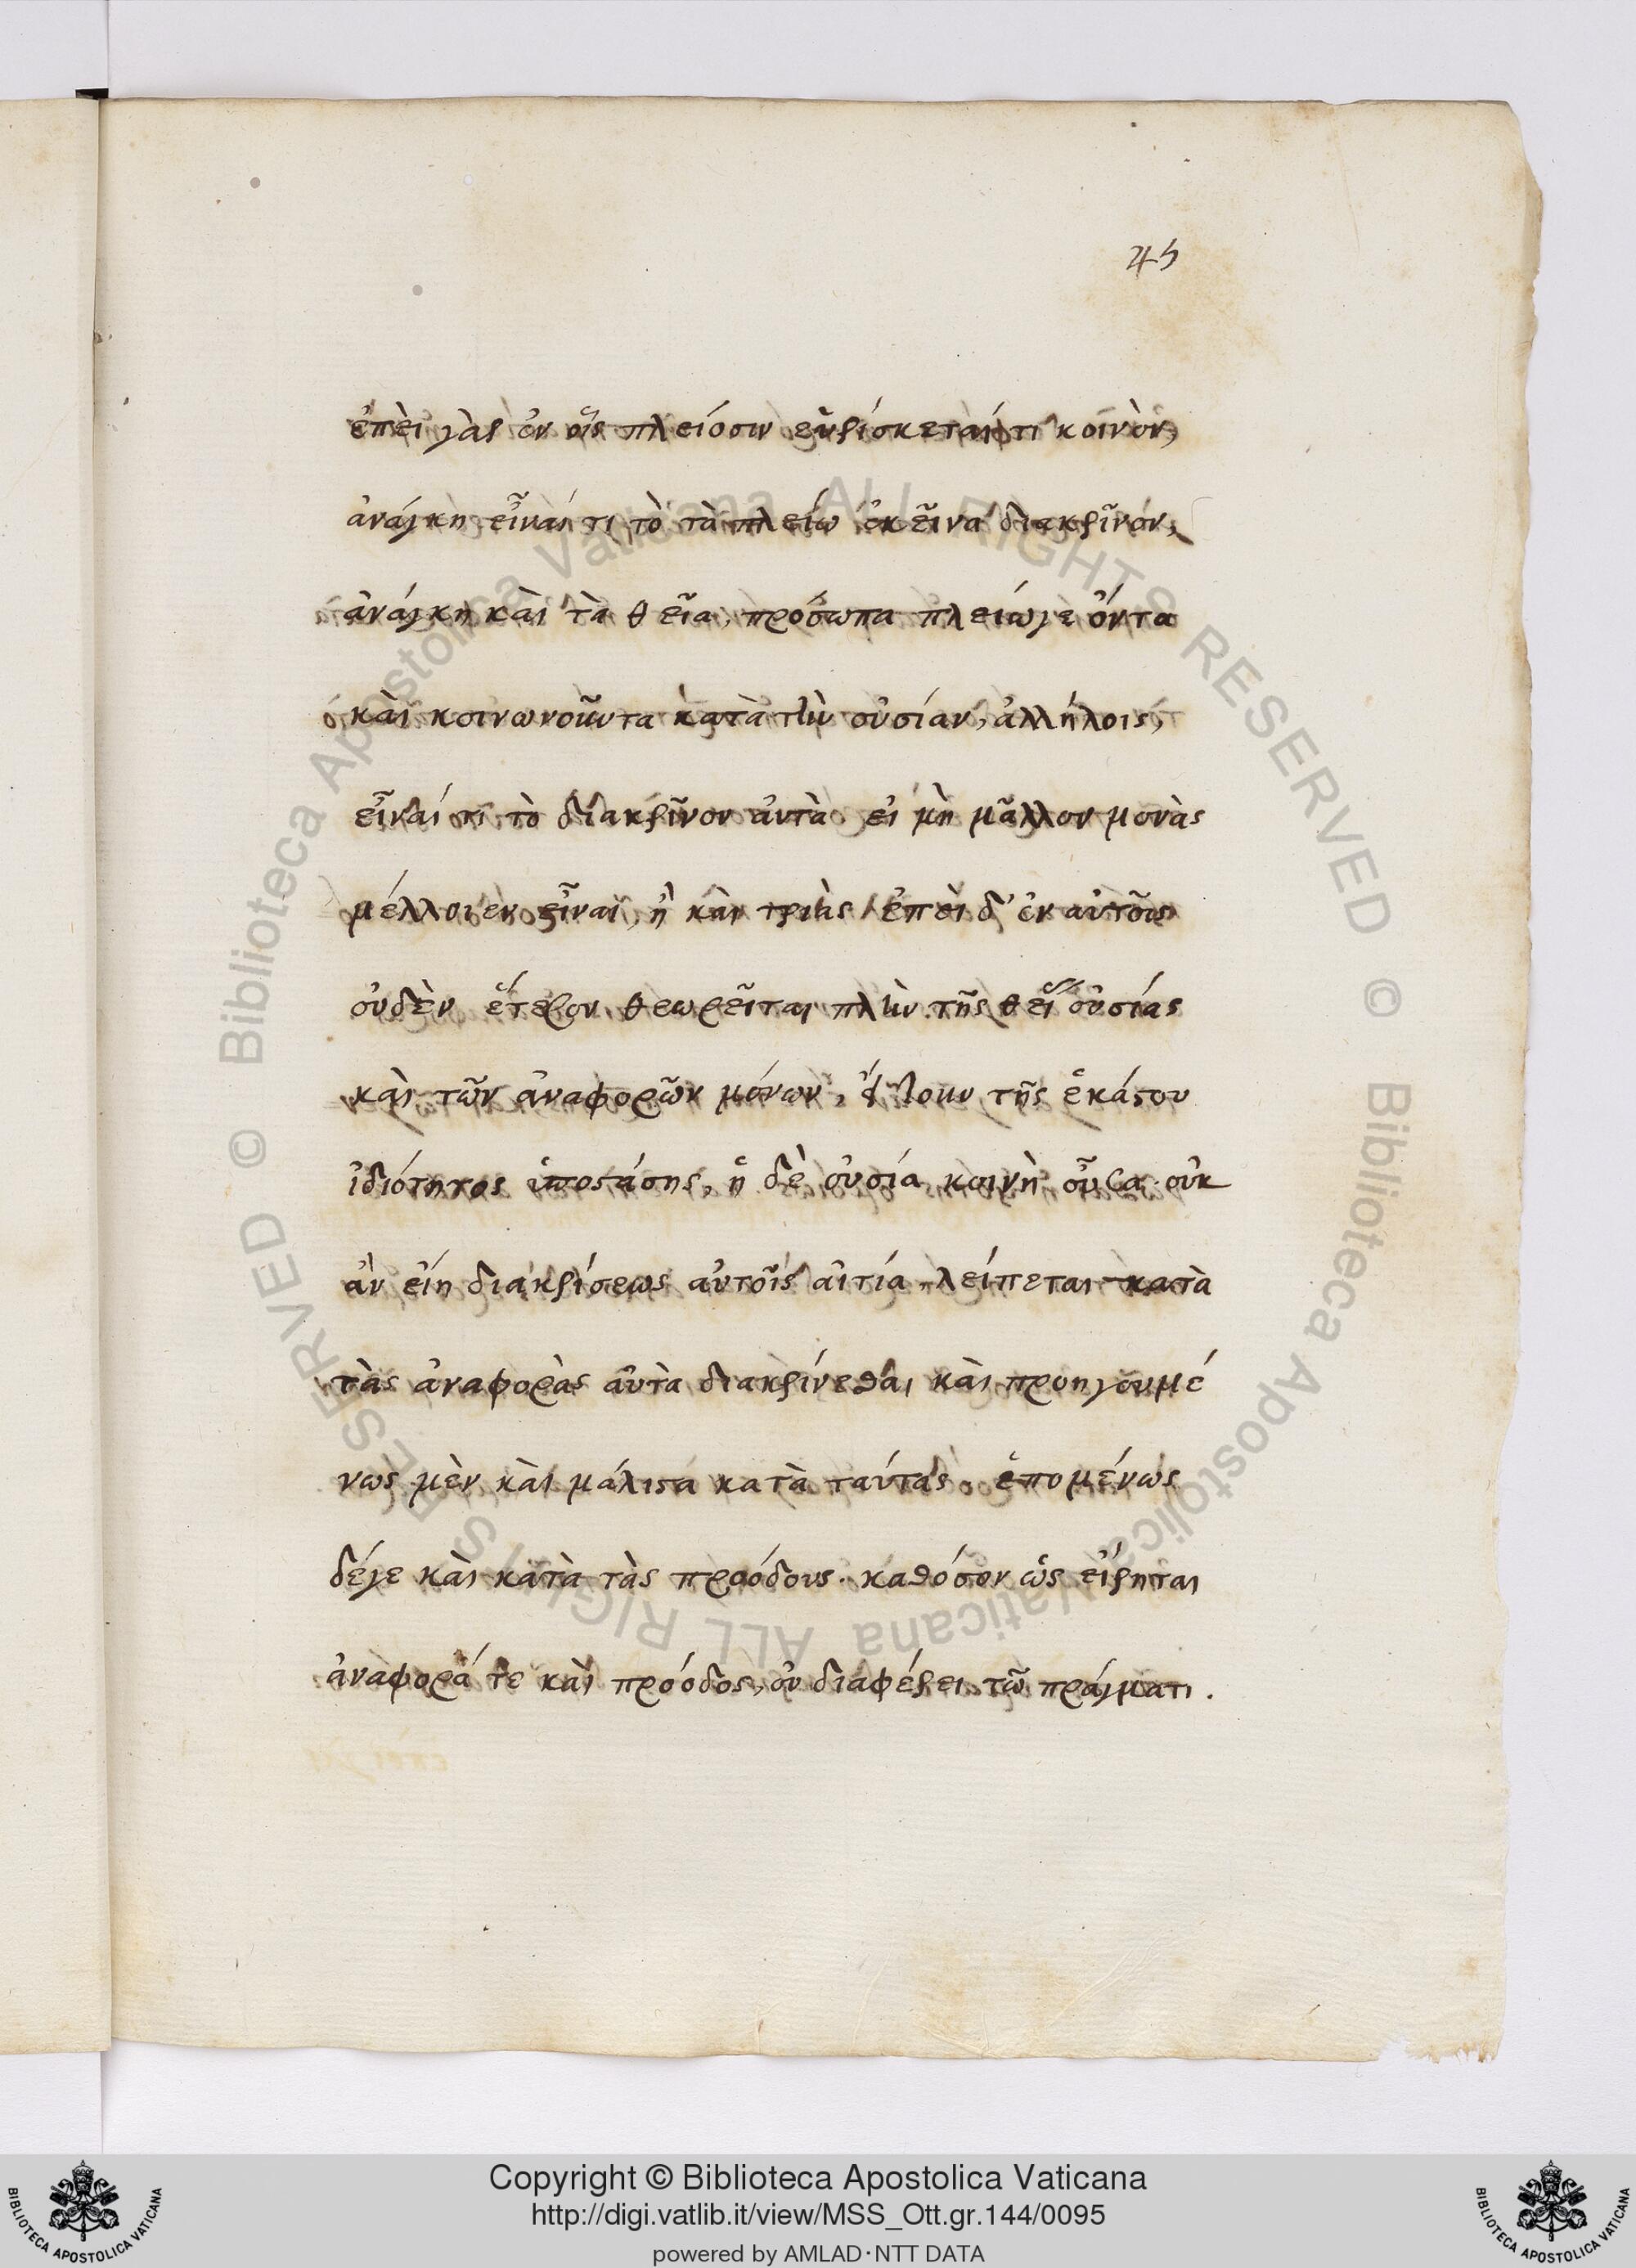 45
ἐπὲι γὰρ ἐν οἷς πλείοσιν εὑρίσκεταί τι κοινὸν,
ἀνάγκη εἶναί τι τὸ τὰ πλείω ἐκεῖνα διακρῖνον,
ἀνάγκη κὰι τὰ θεῖα πρόσωπα πλείω γε ὄντα
κὰι κοινωνοῦντα κατὰ τὴν οὐσίαν, ἀλλήλοις,
εἶναί τι τὸ διακρῖνον ἀυτὰ· ἐι μὴ μᾶλλον μονὰς
μέλλοιεν εἶναι, ἢ κὰι τριὰς, ἐπὲι δ' ἐν αὐτοῖς
οὐδὲν ἕτερον θεωρεῖται πλὴν τῆς θεί οὐσίας
κὰι τῶν ἀναφορῶν μόνων, ἤγουν τῆς ἑκάστου
ἰδιότητος ὑποστάσης, ἡ δὲ οὐσία κοινὴ οὖσα οὐκ
ἀν εἴη διακρίσεως αὐτοῖς αἰτία, λείπεται κατὰ
τὰς ἀναφορὰς αὐτὰ διακρίνεσθαι, κὰι προηγουμέ
νως μὲν κὰι μάλιστα κατὰ ταύτας. ἑπομένως
δέ γε κὰι κατὰ τὰς προόδους. καθόσον ὡς εἴρηται
ἀναφορά τε κὰι πρόοδος, οὐ διαφέρει τῶ πράγματι.
Copyright © Biblioteca Apostolica Vaticana
http://digi.vatlib.it/view/MSS_Ott.gr.144/0095
powered by AMLAD·NTT DATA
BIBLIOTECA APOSTOLICA VATICANA
BIBLIOTECA APOSTOLICA VATICANA
© Biblioteca Apostolica Vaticana ALL RIGHTS RESERVED
© Biblioteca Apostolica Vaticana ALL RIGHTS RESERVED